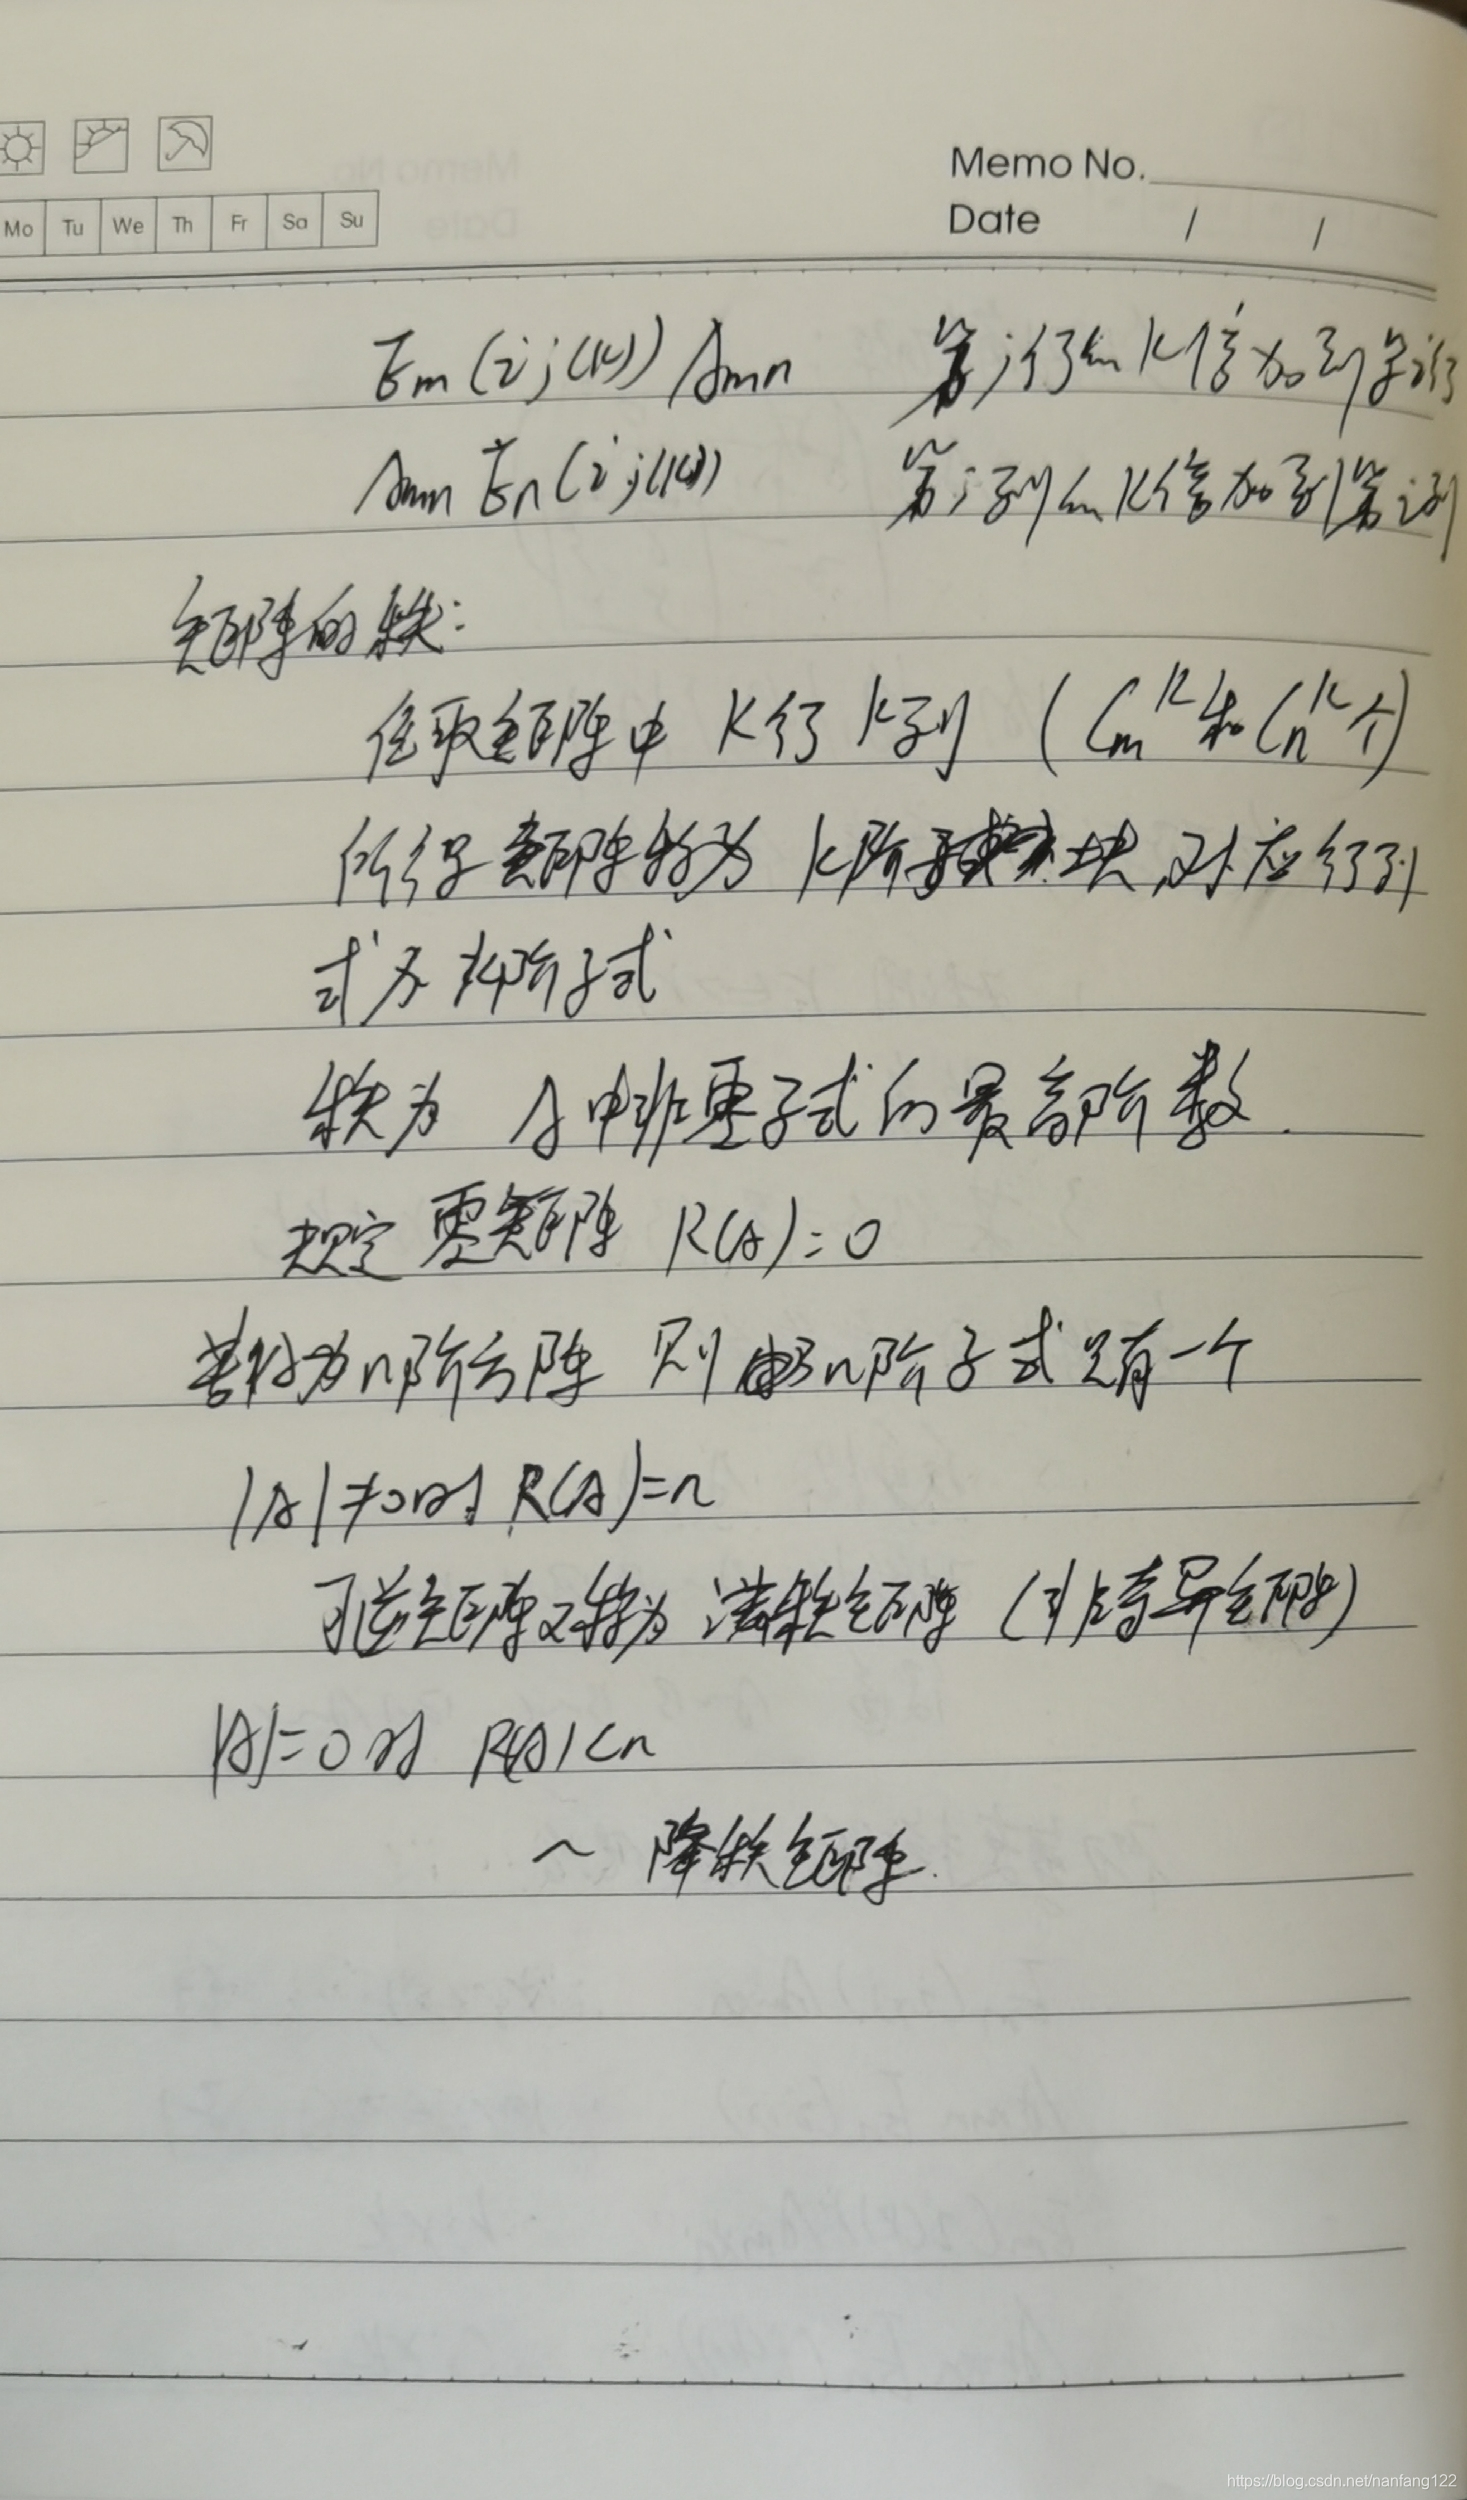 Memo No.
Mo Tu We Th Fr Sa Su
Date / /
Em(ij(k)) Amn 第j行的k倍加到第i行
Amn En(ij(k)) 第i列的k倍加到第j列
矩阵的秩:
任取矩阵中 K行 k列 (Cm^k 和 Cn^k 个)
所得矩阵称为 k阶子块,对应行列
式为 k阶子式
秩为 A中非零子式的最高阶数.
规定 零矩阵 R(A)=0
若A为n阶方阵 则 n阶子式只有一个
|A|≠0时 R(A)=n
可逆矩阵又称为 满秩矩阵 (非奇异矩阵)
|A|=0时 R(A)<n
~ 降秩矩阵.
https://blog.csdn.net/nanfang122